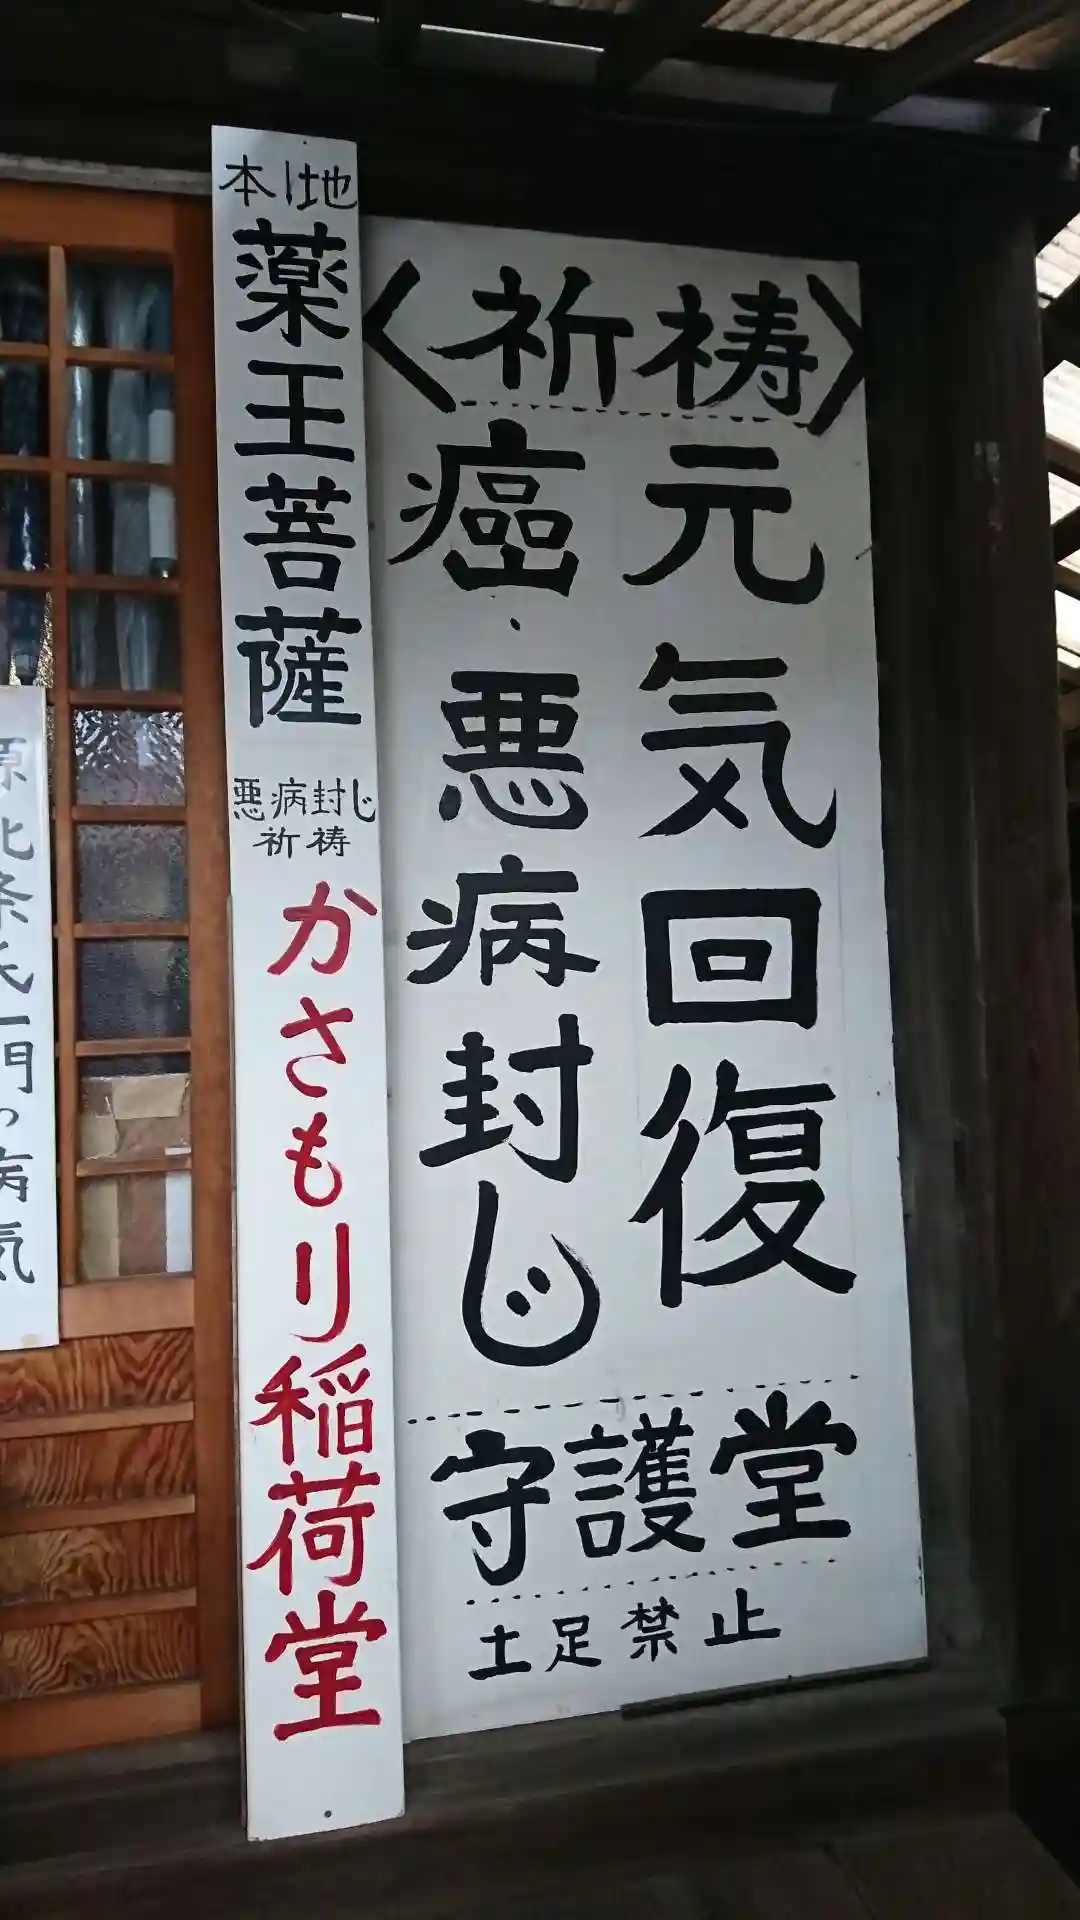 〈祈祷〉
元気回復
癌・悪病封じ
守護堂
土足禁止
本地
薬王菩薩
悪病封じ
祈祷
かさもり稲荷堂
原北条氏一門の病気